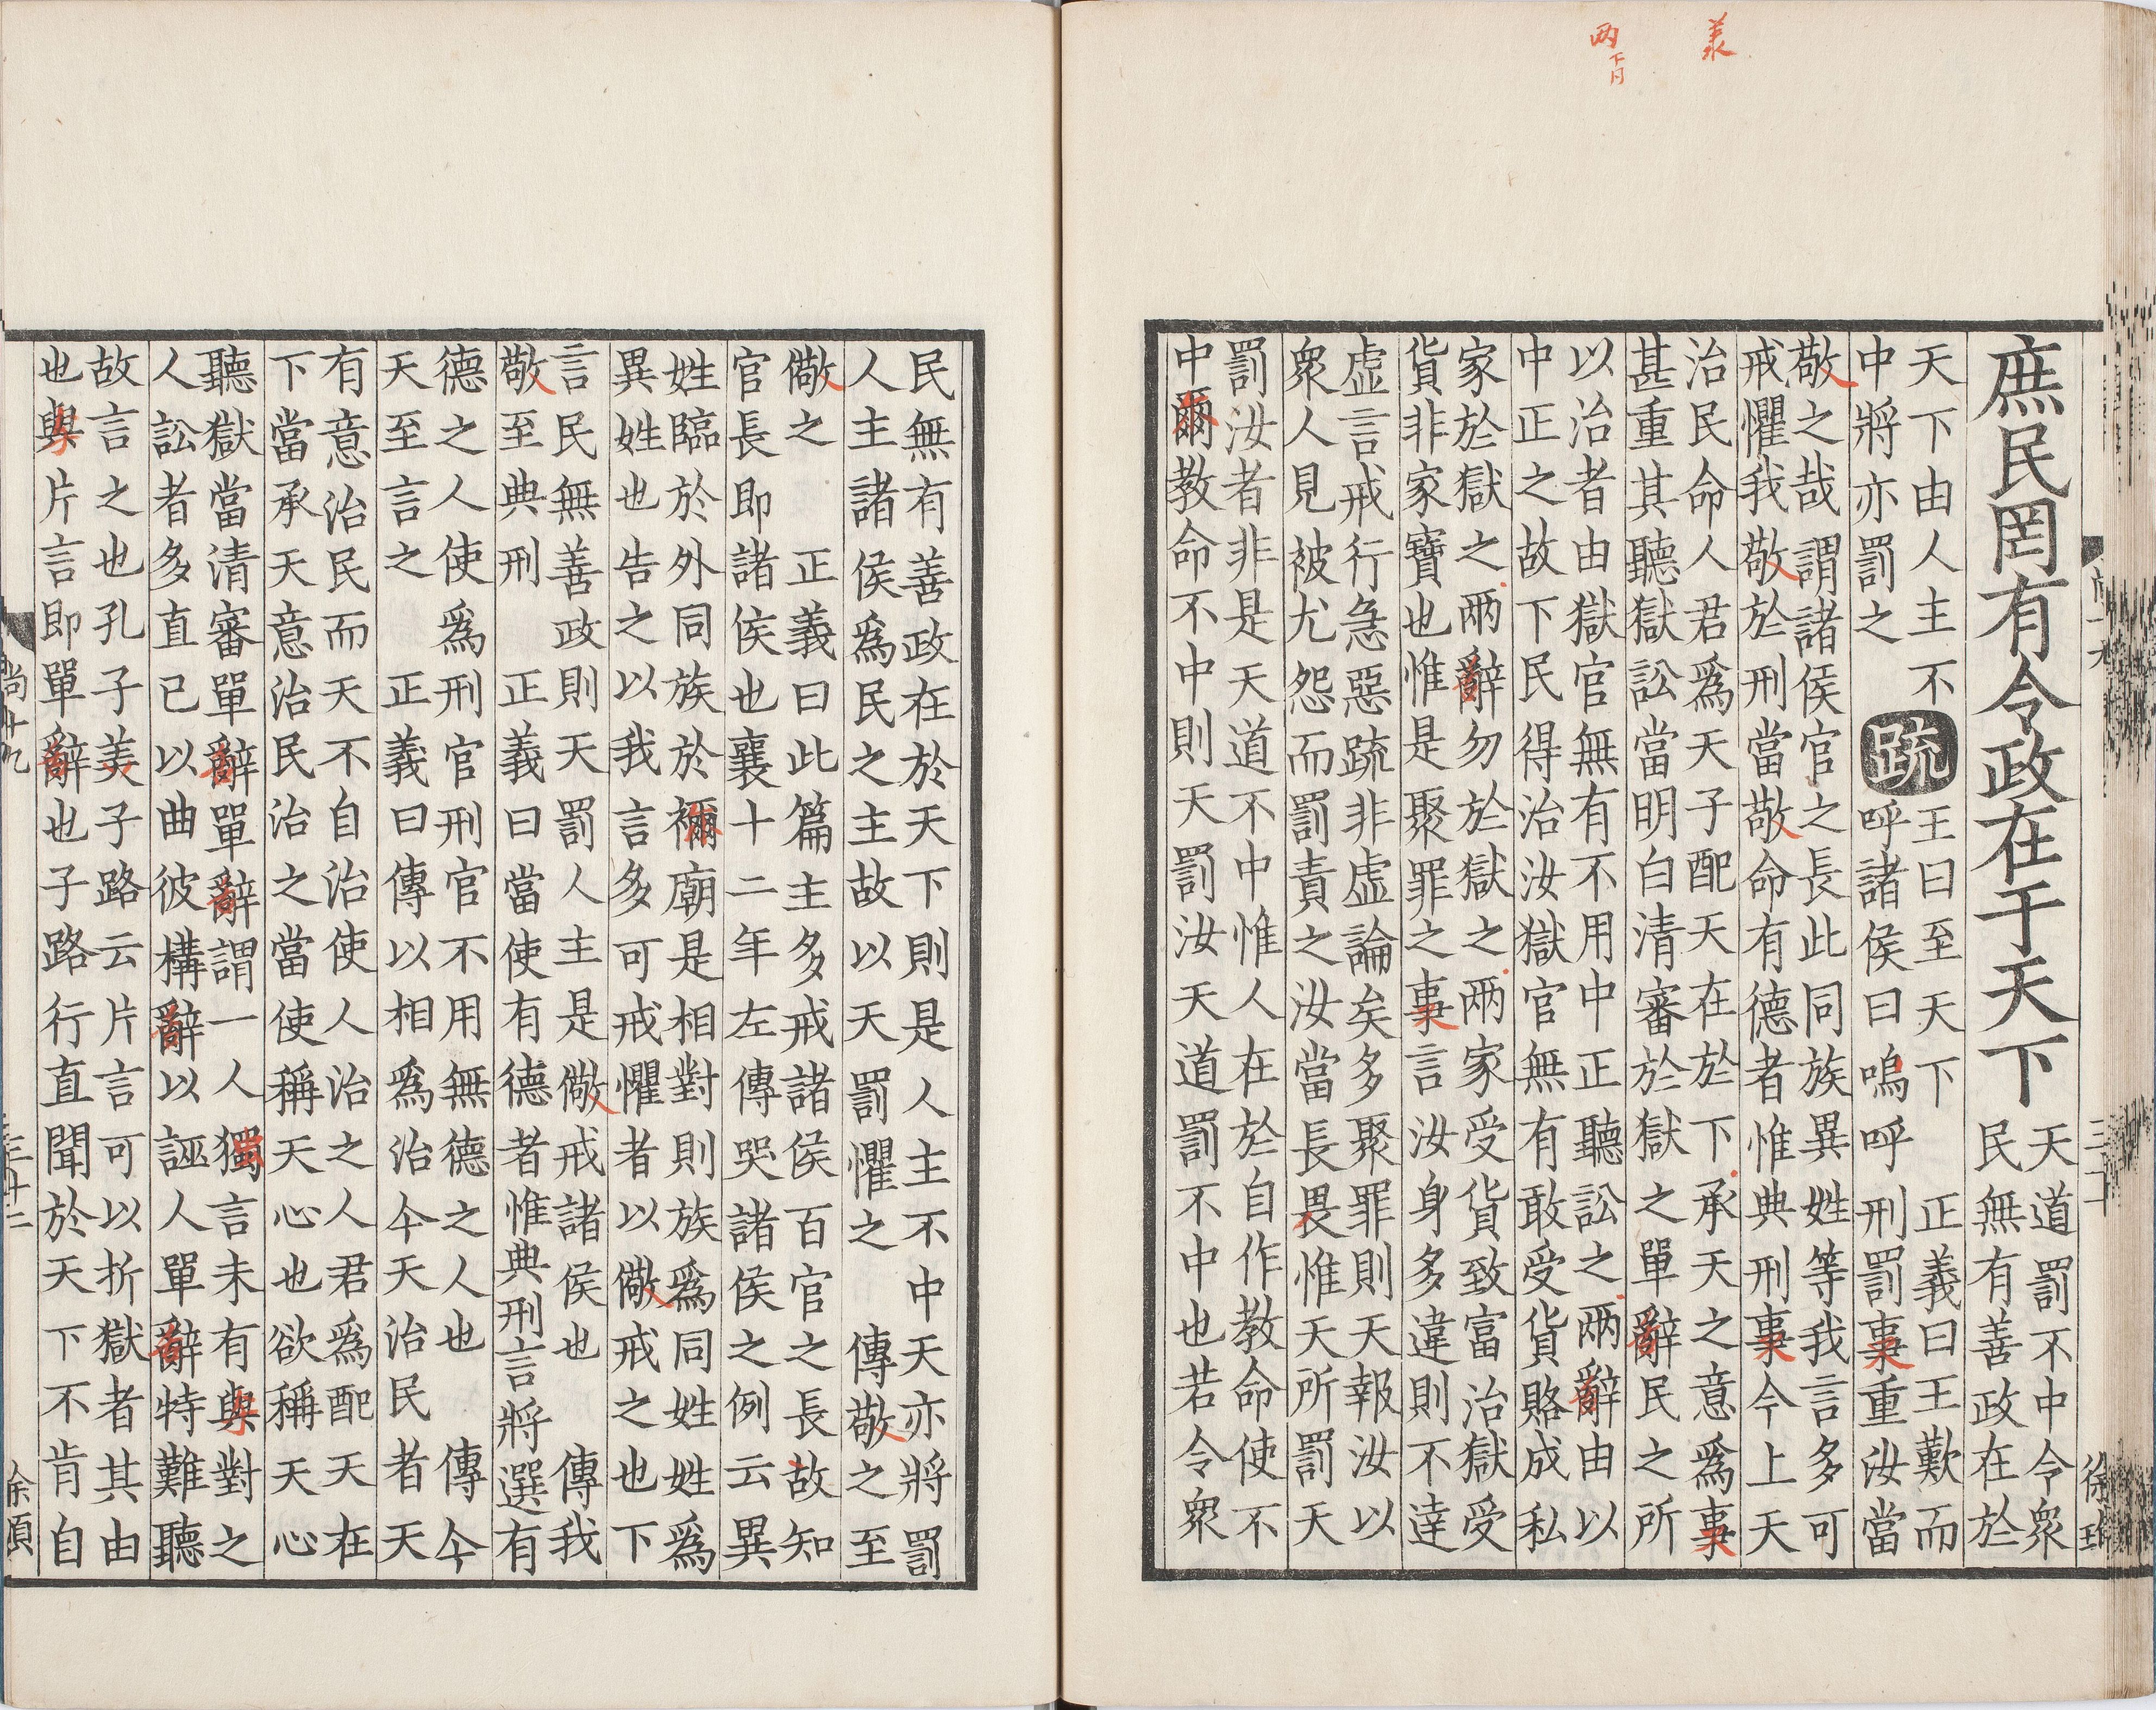 庶民罔有令政在于天下
天道罰不中令衆
民無有善政在於
天下由人主不
中將亦罰之
疏
王曰至天下　正義曰王歎而
呼諸侯曰嗚呼　刑罰事重汝當
敬之哉謂諸侯官之長此同族異姓等我言多可
戒懼我敬於刑當敬命有德者惟典刑事今上天
治民命人君爲天子配天在於下承天之意爲事
甚重其聽獄訟當明白清審於獄之單辭民之所
以治者由獄官無有不用中正聽訟之兩辭由以
中正之故下民得治汝獄官無有敢受貨賂成私
家於獄之兩辭勿於獄之两家受貨致富治獄受
貨非家寶也惟是聚罪之事言汝身多違則不達
虛言戒行急惡疏非虛論矣多聚罪則天報汝以
衆人見被尤怨而罰責之汝當長畏惟天所罰天
罰汝者非是天道不中惟人在於自作教命使不
中爾教命不中則天罰汝天道罰不中也若令衆
民無有善政在於天下則是人主不中天亦將罰
人主諸侯爲民之主故以天罰懼之　傳敬之至
儆之　正義曰此篇主多戒諸侯百官之長故知
官長即諸侯也襄十二年左傳哭諸侯之例云異
姓臨於外同族於禰廟是相對則族爲同姓姓爲
異姓也告之以我言多可戒懼者以儆戒之也下
言民無善政則天罰人主是儆戒諸侯也　傳我
敬至典刑　正義曰當使有德者惟典刑言將選有
德之人使爲刑官刑官不用無德之人也　傳今
天至言之　正義曰傳以相爲治今天治民者天
有意治民而天不自治使人治之人君爲配天在
下當承天意治民治之當使稱天心也欲稱天心
聽獄當清審單辭單辭謂一人獨言未有與對之
人訟者多直已以曲彼構辭以誣人單辭特難聽
故言之也孔子美子路云片言可以折獄者其由
也與片言即單辭也子路行直聞於天下不肯自
尚十九
三十二